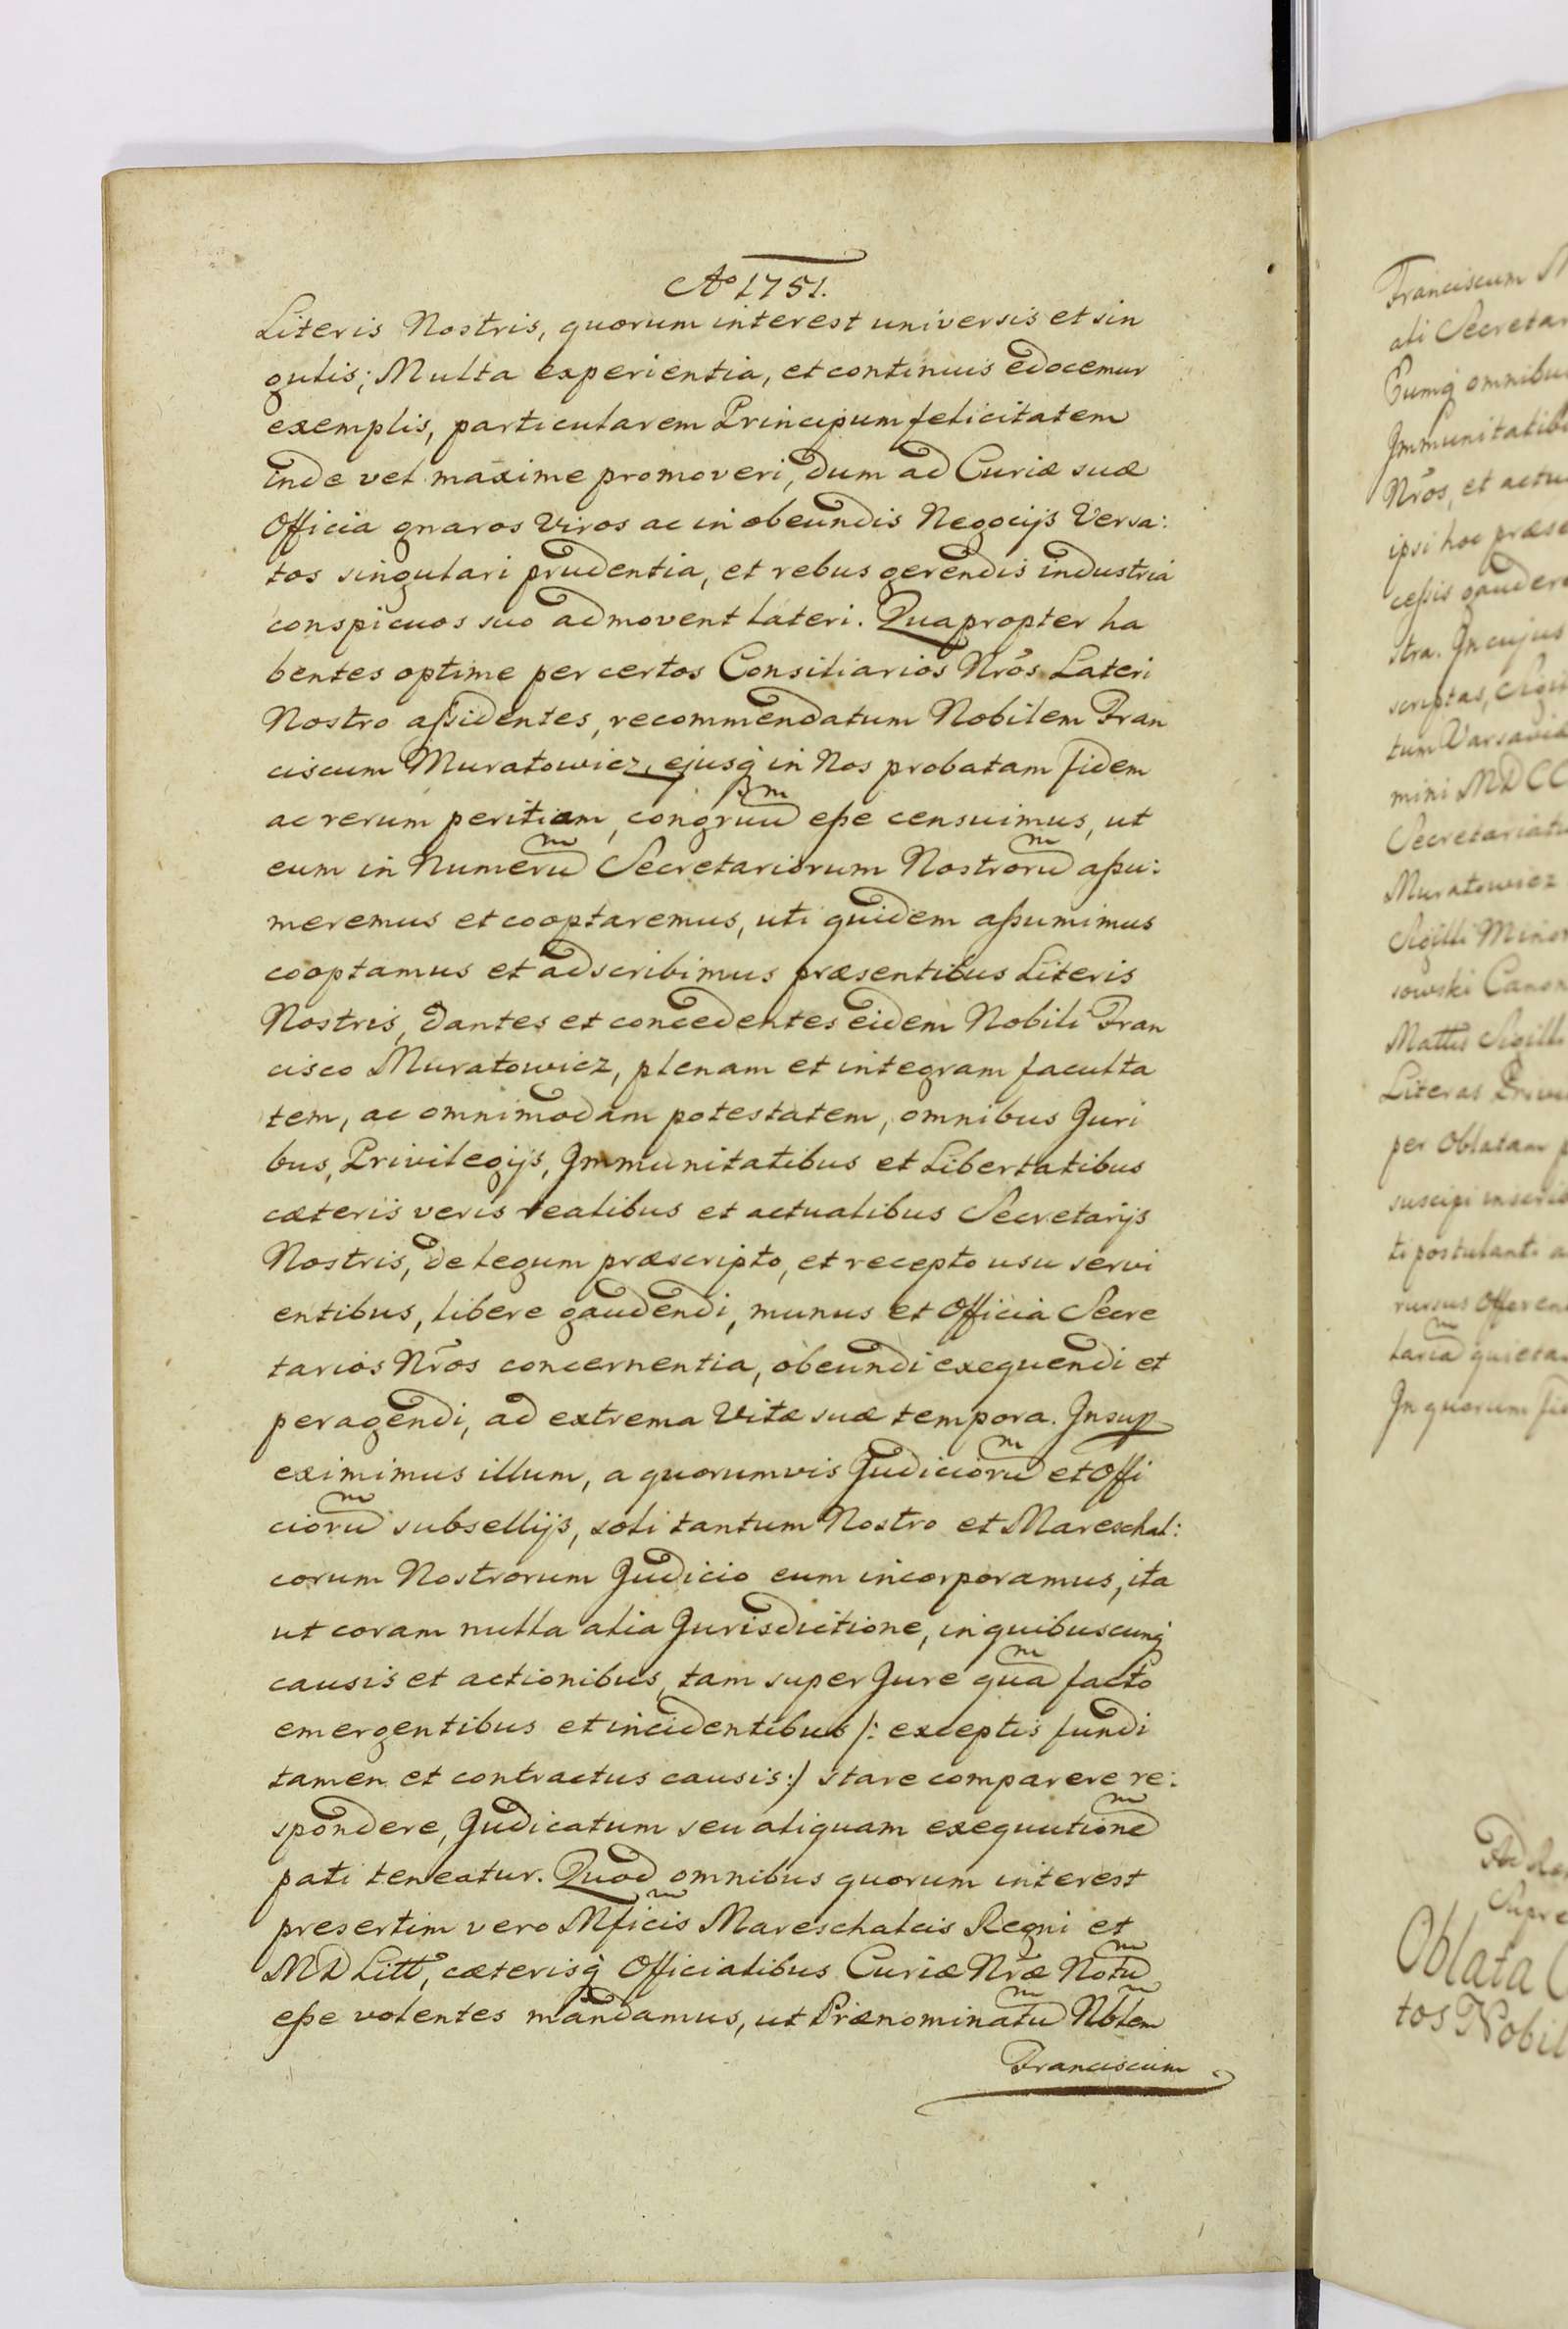 Aº 1751.
Literis Nostris, quorum interest universis et sin
gulis; Multa experientia, et continuis edocemur
exemplis, particularem Principum felicitatem
inde vel maxime promoveri, dum ad Curiæ suæ
Officia gnaros Viros ac in obeundis Negocijs Versa:
tos singulari prudentia, et rebus gerendis industria
conspicuos suo admovent lateri. Quapropter ha
bentes optime per certos Consiliarios Nr̃os Lateri
Nostro aßidentes, recommendatum Nobilem Fran
ciscum Muratowicz, ejusq́ in Nos probatam fidem
ac rerum peritiam, congruũ eße censuimus, ut
eum in Numerũ Secretariorum Nostrorũ aßu:
meremus et cooptaremus, uti quidem aßumimus
cooptamus et adscribimus præsentibus Literis
Nostris, dantes et concedentes eidem Nobili Fran
cisco Muratowicz, plenam et integram faculta
tem, ac omnimodam potestatem, omnibus Juri
bus, Privilegijs, Immunitatibus et Libertatibus
cæteris veris realibus et actualibus Secretarijs
Nostris, de legum præscripto, et recepto usu servi
entibus, libere gaudendi, munus et Officia Secre
tarios Nr̃os concernentia, obeundi exequendi et
peragendi, ad extrema Vitæ suæ tempora. Insup
eximimus illum, a quorumvis Judiciorũ et Offi
ciorũ subsellijs, soli tantum Nostro et Mareschal:
corum Nostrorum Judicio eum incorporamus, ita
ut coram nulla alia Jurisdictione, in quibuscunq́
causis et actionibus, tam super Jure quã facto
emergentibus et incidentibus /: exceptis fundi
tamen et contractus causis :/ stare comparere re:
spondere, Judicatum seu aliquam exequutionẽ
pati teneatur. Quod omnibus quorum interest
presertim vero Mficis Mareschalcis Regni et
MD Litt, cæterisq́ Officialibus Curiæ Nr̃æ Notũ
eße volentes mandamus, ut Prænominatũ Nblem
Franciscum
Franciscum
ali Secretar
Eumq́ omnibu
Immunitatib
Nr̃os, et actu
ipsi hoc præse
ceßis gaudere
stra. In cujus
scriptas, Sigil
tum Varsaviæ
mini MDCC
Secretariatu
Muratowicz
Sigilli Minor
sowski Canon
Literas Privi
per Oblatam p
suscipi
ti postulanti a
rursus Offeren
In quorum fid
Supre
Oblata
tos Nobil